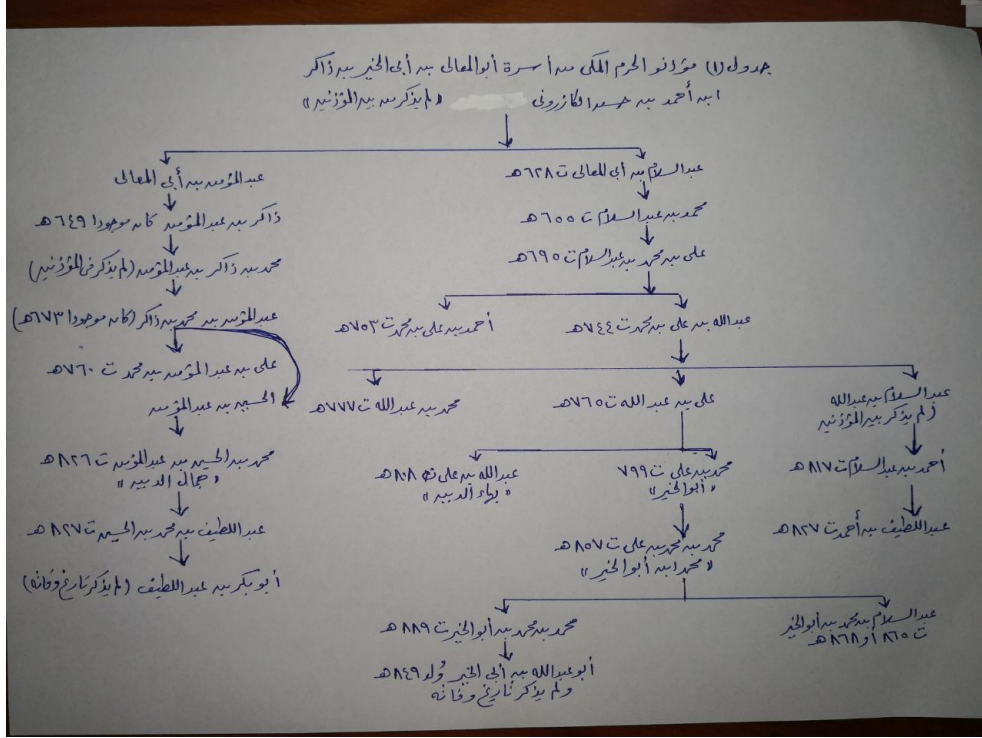 جدول (١) مؤذنو الحرم المكى من أسرة أبو المعالى بن أبى الخير بن ذاكر
ابن أحمد بن حسن الكازرونى « لم يذكر من بين المؤذنين »
عبد السلام بن أبى المعالى ت ٦٢٨هـ
محمد بن عبد السلام ت ٦٥٥هـ
على بن محمد بن عبد السلام ت ٦٩٥هـ
عبد الله بن على بن محمد ت ٧٤٤هـ
أحمد بن على بن محمد ت ٧٥٣هـ
عبد السلام بن عبد الله
(لم يذكر بين المؤذنين
على بن عبد الله ت ٧٦٥هـ
محمد بن عبد الله ت ٧٧٧هـ
أحمد بن عبد السلام ت ٨١٧هـ
عبد اللطيف بن أحمد ت ٨٢٧هـ
محمد بن على ت ٧٩٩
« أبو الخير »
عبد الله بن على ٨٠٨هـ
« بهاء الدين »
محمد بن محمد بن على ت ٨٥٧هـ
« محمد ابن أبو الخير »
عبد السلام بن محمد بن أبو الخير
ت ٨٦٥ أو ٨٦٨هـ
محمد بن محمد بن أبو الخير ت ٨٨٩هـ
أبو عبد الله بن أبى الخير وُلد ٨٤٩هـ
ولم يذكر تاريخ وفاته
عبد المؤمن بن أبى المعالى
ذاكر بن عبد المؤمن كان موجودا ٦٤٩هـ
محمد بن ذاكر بن عبد المؤمن (لم يذكر فى المؤذنين)
عبد المؤمن بن محمد بن ذاكر (كان موجودا ٦٧٣هـ)
على بن عبد المؤمن بن محمد ت ٧٦٠هـ
الحسين بن عبد المؤمن
محمد بن الحسين بن عبد المؤمن ت ٨٢٦هـ
« جمال الدين »
عبد اللطيف بن محمد بن الحسين ت ٨٢٧هـ
أبو بكر بن عبد اللطيف (لم يذكر تاريخ وفاته)